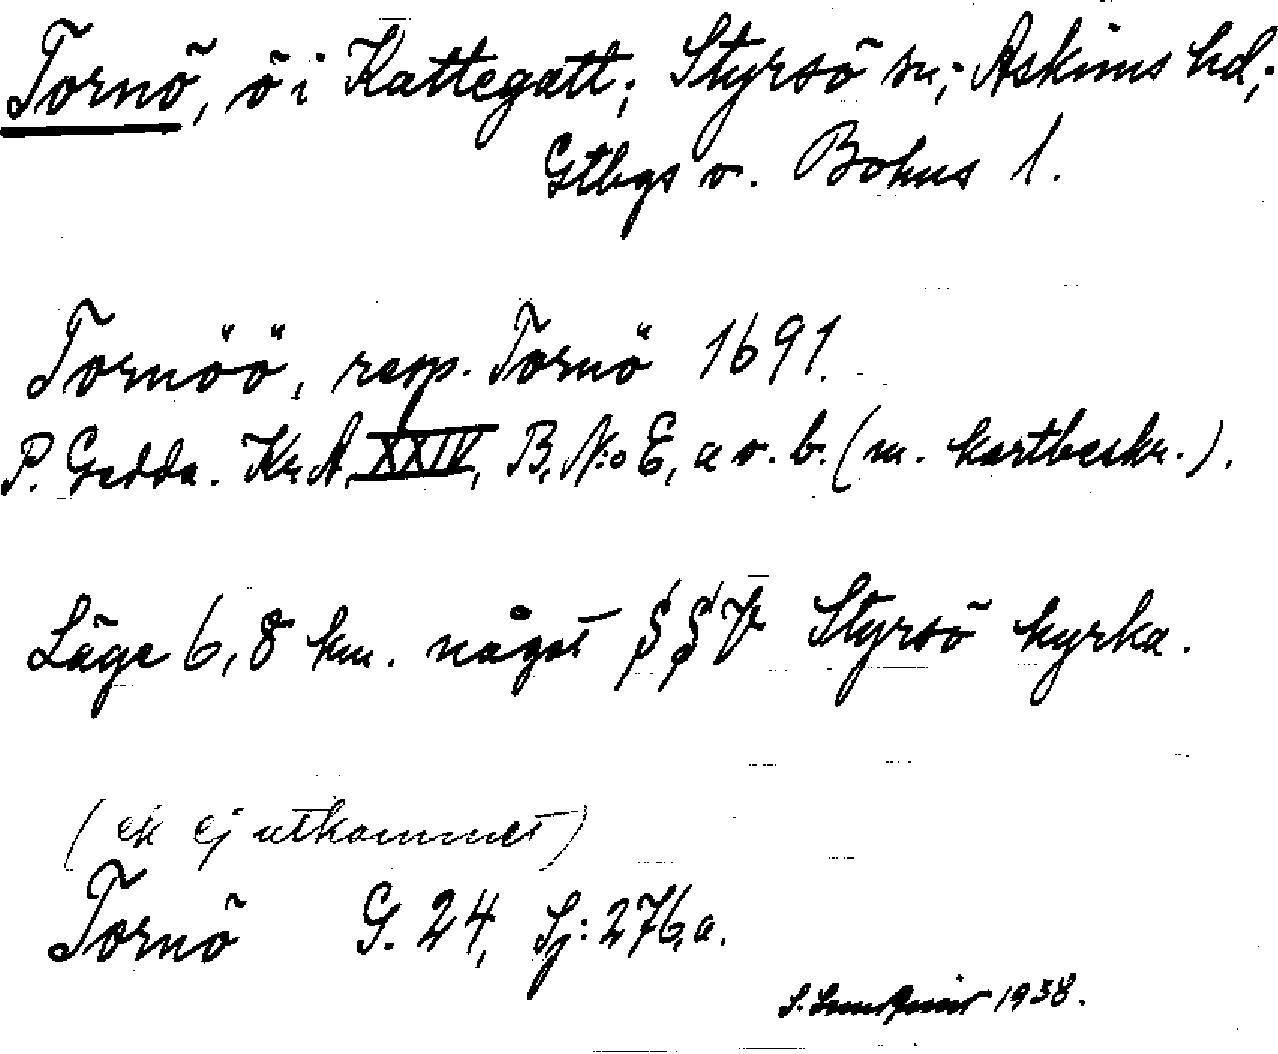 Tornö, ö i Kattegatt; Styrsö sn; Askims hd;
Gtbgs o. Bohus l.
Tornöö, resp. Tornö 1691.
P. Gedda. Kr. A. XXIV, B, N:o E, a o. b. (m. kartbeskr.).
Läge 6,8 km. något SSV Styrsö kyrka.
(ek ej utkommet)
Tornö G. 24, Sj: 276,a.
1938.